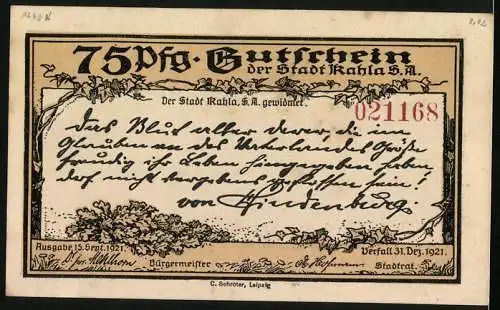 75 Pfg. Gutschein
der Stadt Kahla S.A.
Der Stadt Kahla, S. A. gewidmet.
021168
Das Blut aller derer, die im
Glauben an des Vaterlandes Größe
freudig ihr Leben hingegeben haben,
darf nicht vergebens geflossen sein!
von Hindenburg.
Ausgabe 15. Sept. 1921.
Verfall 31. Dez. 1921.
Bürgermeister
Stadtrat.
C. Schröter, Leipzig